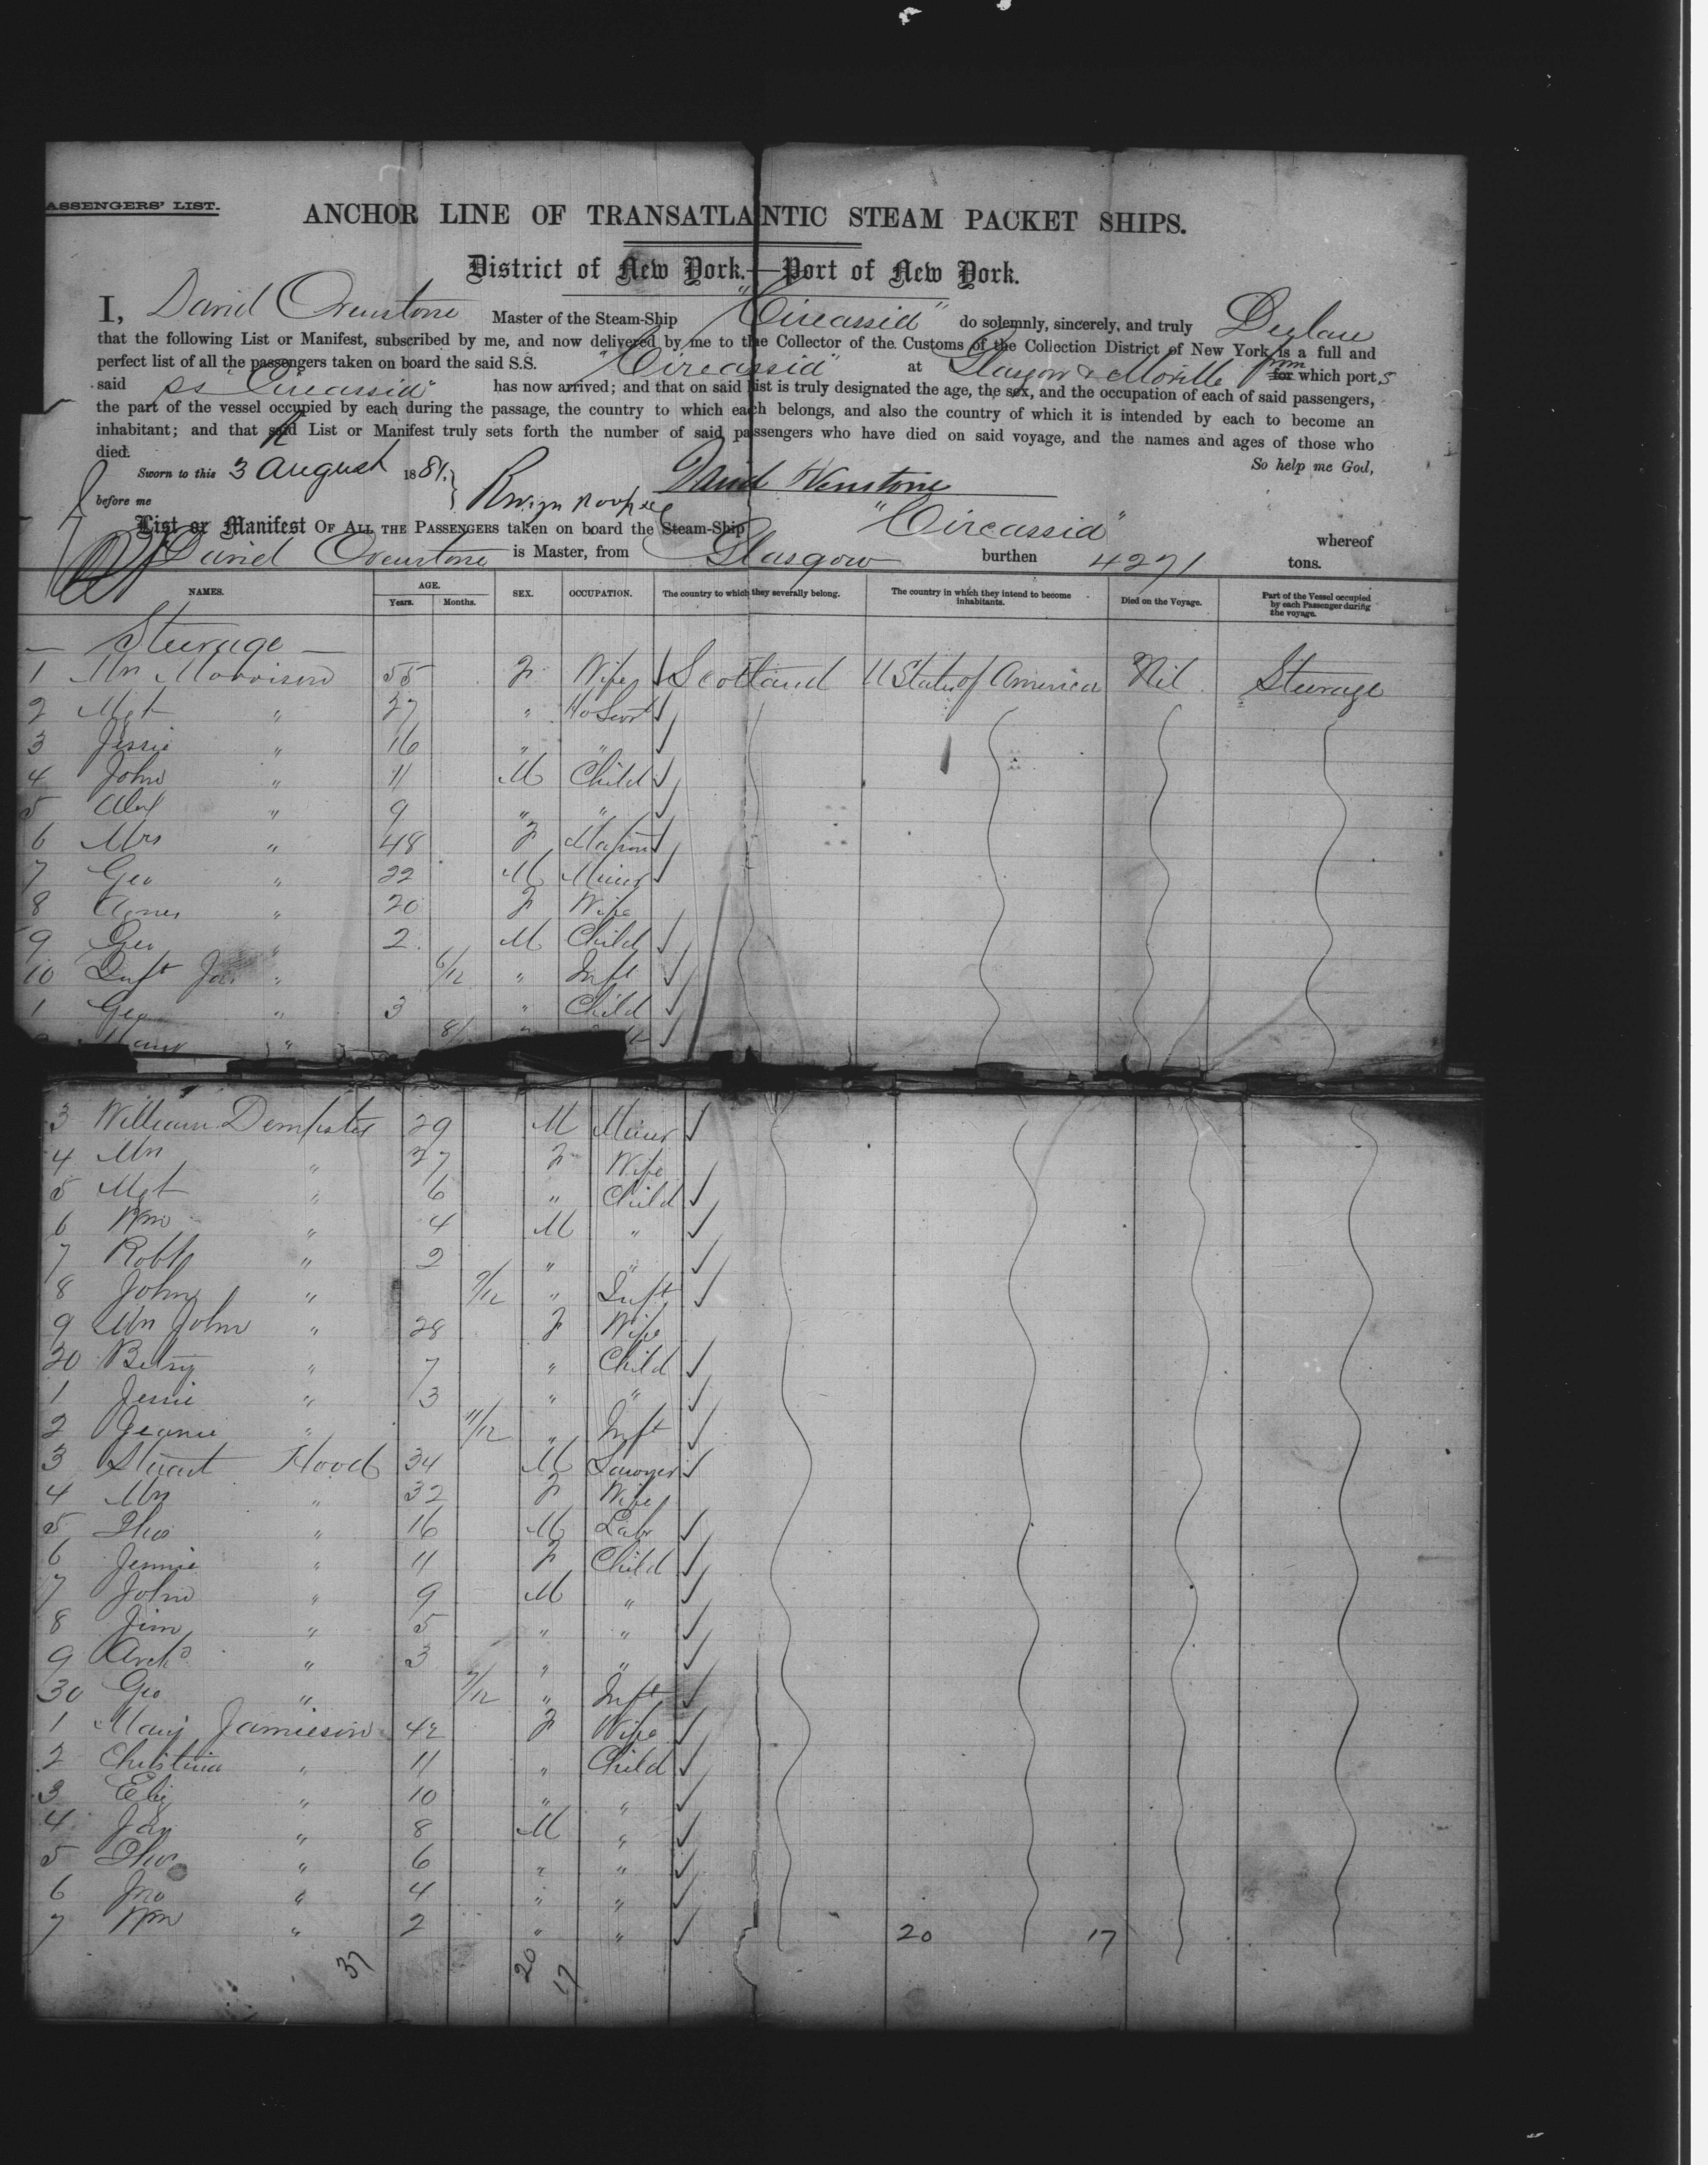 ASSENGERS' LIST.
ANCHOR LINE OF TRANSATLANTIC STEAM PACKET SHIPS.
District of New York.—Port of New York.
I, David Ovenstone Master of the Steam-Ship "Circassia" do solemnly, sincerely, and truly Declare
that the following List or Manifest, subscribed by me, and now delivered by me to the Collector of the Customs of the Collection District of New York is a full and
perfect list of all the passengers taken on board the said S.S. "Circassia" at Glasgow & Moville from which ports
said ss "Circassia" has now arrived; and that on said list is truly designated the age, the sex, and the occupation of each of said passengers,
the part of the vessel occupied by each during the passage, the country to which each belongs, and also the country of which it is intended by each to become an
inhabitant; and that said List or Manifest truly sets forth the number of said passengers who have died on said voyage, and the names and ages of those who
died. So help me God,
Sworn to this 3 August 1881.
before me David Ovenstone
List or Manifest OF ALL THE PASSENGERS taken on board the Steam-Ship "Circassia" whereof
David Ovenstone is Master, from Glasgow burthen 4271 tons.
NAMES. AGE. Years. Months. SEX. OCCUPATION. The country to which they severally belong. The country in which they intend to become inhabitants. Died on the Voyage. Part of the Vessel occupied by each Passenger during the voyage.
— Steerage —
1 Mrs Morrison 55 F Wife Scotland U States of America Nil Steerage
2 Mgt " 27 " Ho Servt
3 Jessie " 16 " "
4 John " 11 M Child
5 Alex " 9 " "
6 Mrs " 48 F Matron
7 Geo " 22 M Miner
8 Agnes " 20 F Wife
9 Geo " 2 M Child
10 Inft Jas " 6/12 " Inft
1 Geo " 3 " Child
" 8/
3 William Dempster 29 M Miner
4 Mrs " 27 F Wife
5 Mgt " 6 " Child
6 Wm " 4 M "
7 Robt " 2 " "
8 John " 9/12 " Inft
9 Mrs John " 28 F Wife
20 Betsy " 7 " Child
1 Jessie " 3 " "
2 Jeanie " 11/12 " Inft
3 Stuart Hood 34 M Sawyer
4 Mrs " 32 F Wife
5 Thos " 16 M Labr
6 Jennie " 11 F Child
7 John " 9 M "
8 Jim " 5 " "
9 Archd " 3 " "
30 Geo " 7/12 " Inft
1 Mary Jamieson 42 F Wife
2 Christina " 11 " Child
3 Eliz " 10 " "
4 Jas " 8 M "
5 Thos " 6 " "
6 Jno " 4 " "
7 Wm " 2 " " 20 17
37 20 17